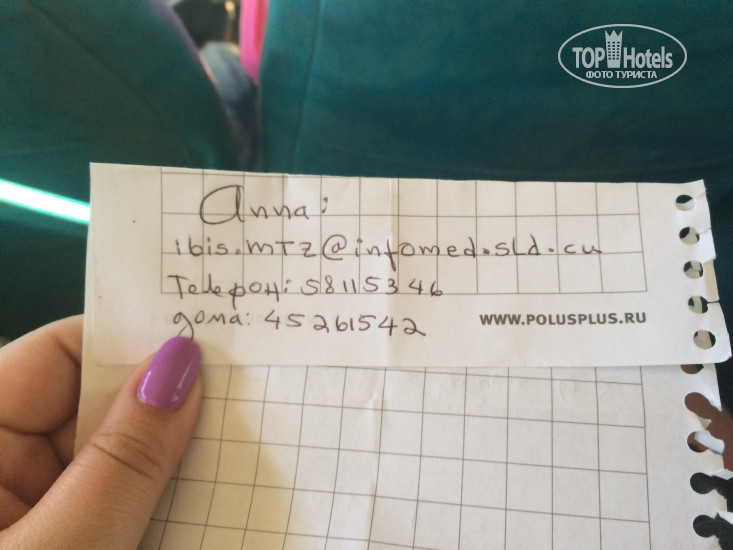 TOP Hotels
ФОТО ТУРИСТА
Anna:
ibis.mTz@infomed.sld.cu
Телефон: 58115346
дома: 45261542
WWW.POLUSPLUS.RU